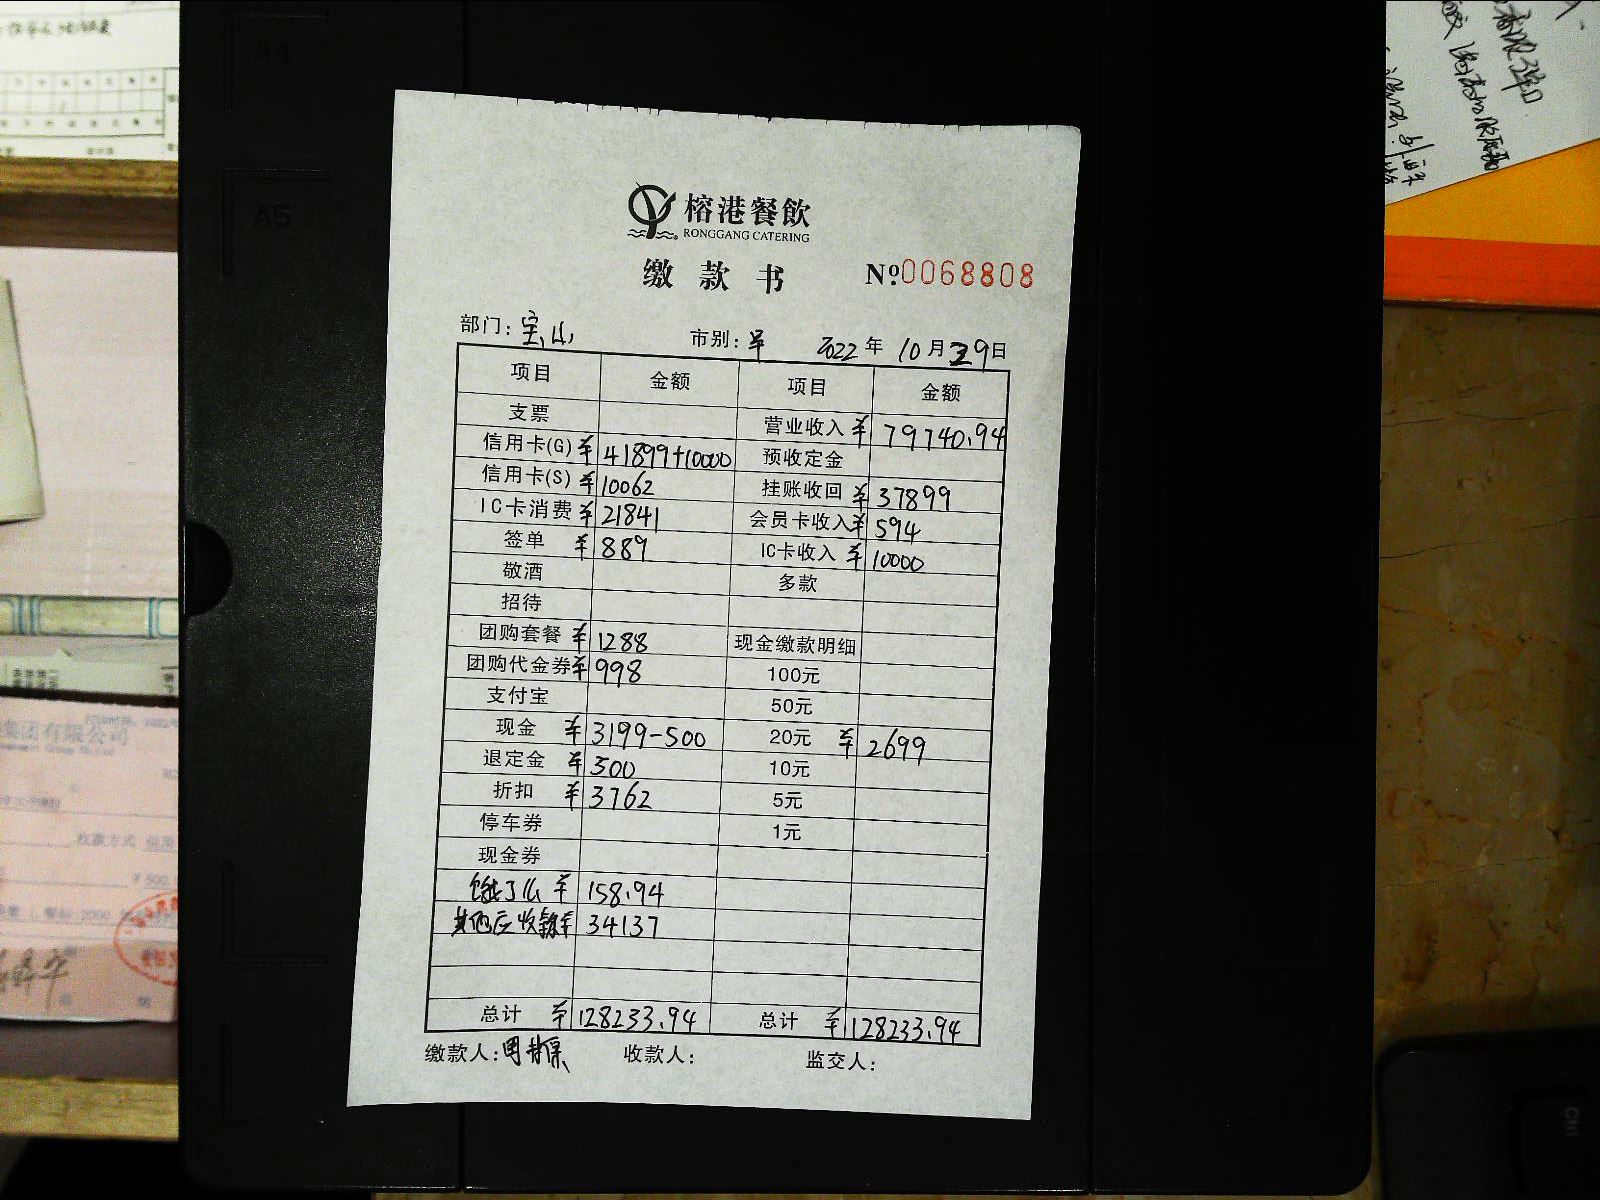 榕港餐飲
RONGGANG CATERING
缴款书 №0068808
部门：宝山 市别：早 2022年10月29日
项目 金额 项目 金额
支票 营业收入 ¥79740.94
信用卡(G) ¥41899+10000 预收定金
信用卡(S) ¥10062 挂账收回 ¥37899
IC卡消费 ¥21841 会员卡收入 ¥594
签单 ¥889 IC卡收入 ¥10000
敬酒 多款
招待
团购套餐 ¥1288 现金缴款明细
团购代金券 ¥998 100元
支付宝 50元
现金 ¥3199-500 20元 ¥2699
退定金 ¥500 10元
折扣 ¥3762 5元
停车券 1元
现金券
饿了么 ¥158.94
其他应收款 ¥34137
总计 ¥128233.94 总计 ¥128233.94
缴款人： 收款人： 监交人：
A5
集团有限公司
收款方式
¥500.
Ctrl